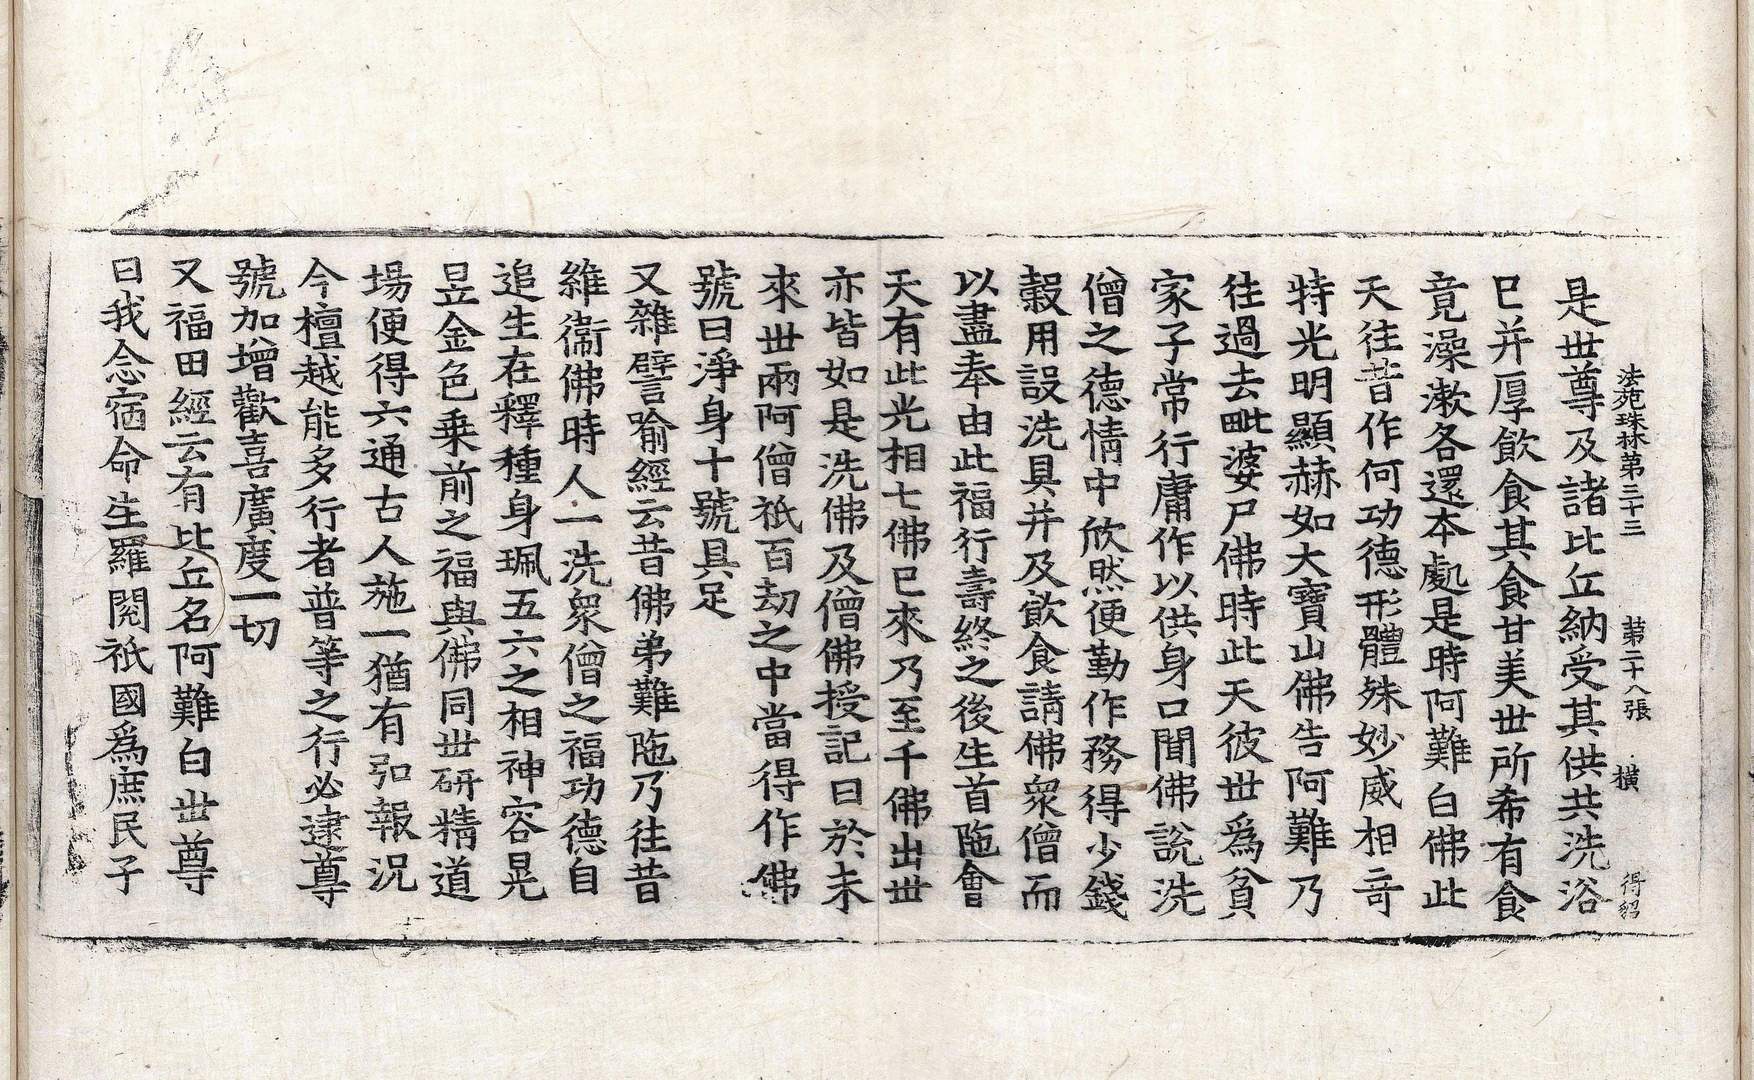 法苑珠林第三十三　第二十八張　橫　得紹
是世尊及諸比丘納受其供共洗浴
已并厚飲食其食甘美世所希有食
竟澡漱各還本處是時阿難白佛此
天往昔作何功德形體殊妙威相竒
特光明顯赫如大寶山佛告阿難乃
往過去毗婆尸佛時此天彼世爲貧
家子常行庸作以供身口聞佛說洗
僧之德情中欣然便勤作務得少錢
糓用設洗具并及飲食請佛衆僧而
以盡奉由此福行壽終之後生首陁會
天有此光相七佛已來乃至千佛出世
亦皆如是洗佛及僧佛授記曰於未
來世兩阿僧祇百劫之中當得作佛
號曰淨身十號具足
又雜譬喻經云昔佛弟難陁乃往昔
維衞佛時人一洗衆僧之福功德自
追生在釋種身珮五六之相神容晃
昱金色乗前之福與佛同世研精道
場便得六通古人施一猶有弘報況
今檀越能多行者普等之行必逮尊
號加增歡喜廣度一切
又福田經云有比丘名阿難白世尊
曰我念宿命生羅閱祇國爲庶民子